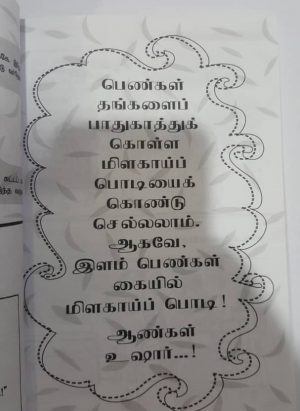 பெண்கள்
தங்களைப்
பாதுகாத்துக்
கொள்ள
மிளகாய்ப்
பொடியைக்
கொண்டு
செல்லலாம்.
ஆகவே,
இளம் பெண்கள்
கையில்
மிளகாய்ப் பொடி!
ஆண்கள்
உஷார்...!